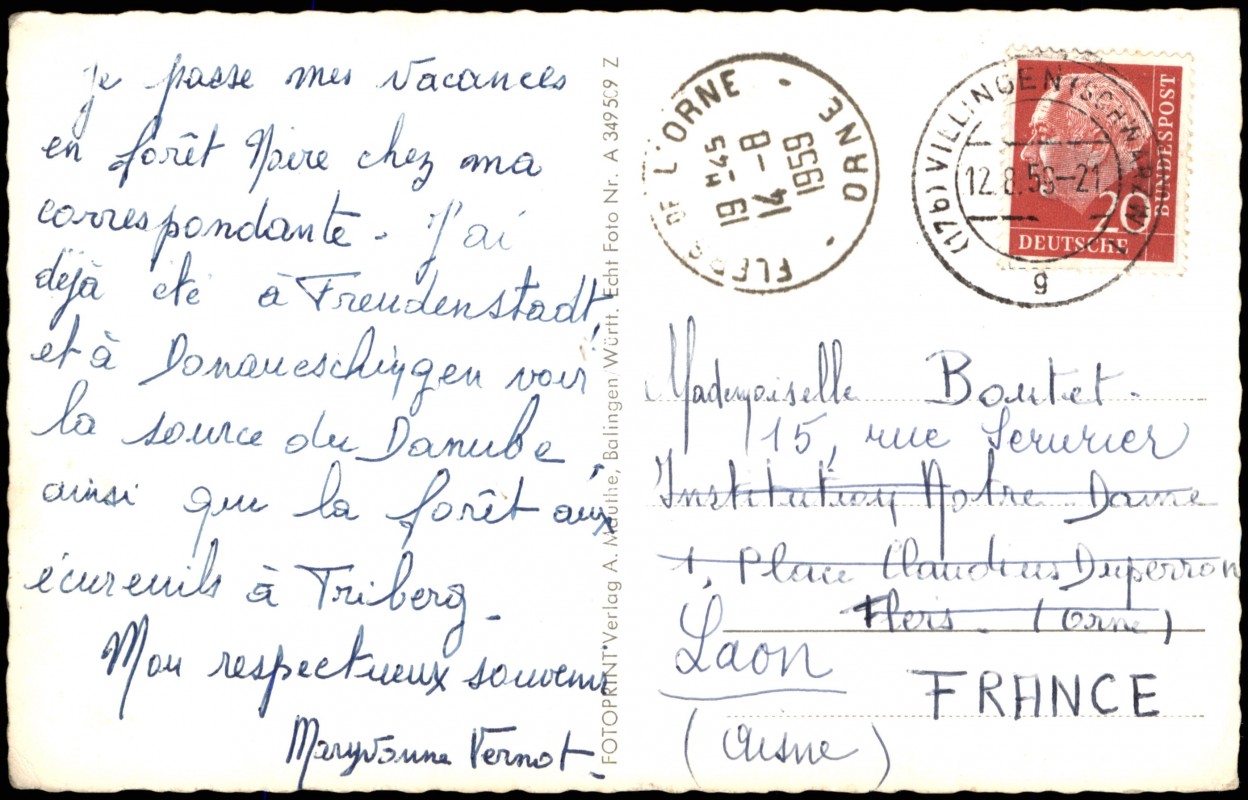 je passe mes vacances
en forêt Noire chez ma
correspondante - J'ai
déjà été à Freudenstadt,
et à Donaueschingen voir
la source du Danube,
ainsi que la forêt aux
écureuils à Triberg -
Mon respectueux souvenir
Maryvonne Vernot -
FOTOPRINT Verlag A. Mauthe, Balingen/Württ. Echt Foto Nr. A 349509 Z
FLERS DE L'ORNE · ORNE ·
19H45
14-8
1959
(17b) VILLINGEN (SCHWARZW)
12.8.59-21
g
BUNDESPOST
20
DEUTSCHE
Mademoiselle Boutet -
15, rue Serurier
Institution Notre Dame
1, Place Claudius Duperron
Flers - (Orne)
Laon
FRANCE
(Aisne)